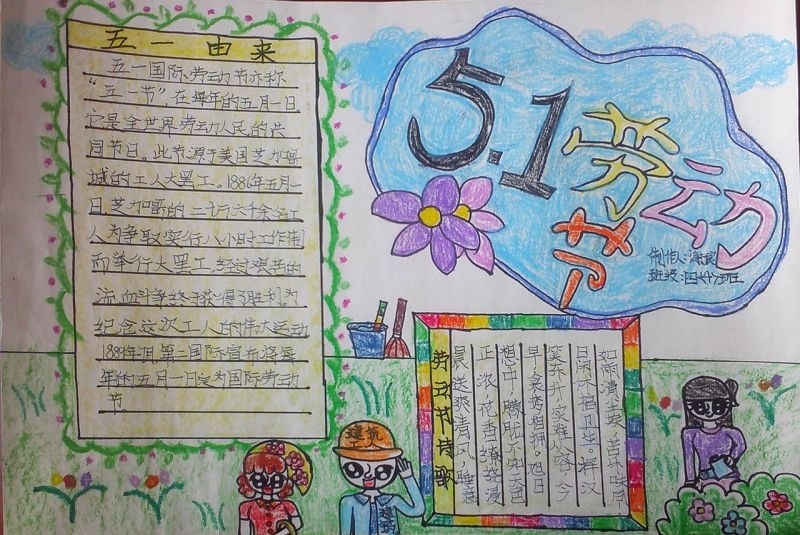 五一由来
五一国际劳动节亦称
“五一节”，在每年的五月一日
它是全世界劳动人民的共
同节日。此节源于美国芝加哥
城的工人大罢工。1886年五月一
日，芝加哥的二十万六千余名工
人为争取实行八小时工作制
而举行大罢工，经过艰苦的
流血斗争终于获得了胜利。为
纪念这次工人的伟大运动
1889年7月第二国际宣布将每
年的五月一日定为国际劳动
节
5.1劳动
节
制作人：
班级：四
劳动节诗歌
晨送爽清风，睡意
正浓，花香缭绕漫
想中，朦胧不知
早，衾梦相拥。旭日
笑东升，实难从容，今
日闲休搞卫生。挥汉
如雨
建筑
建筑